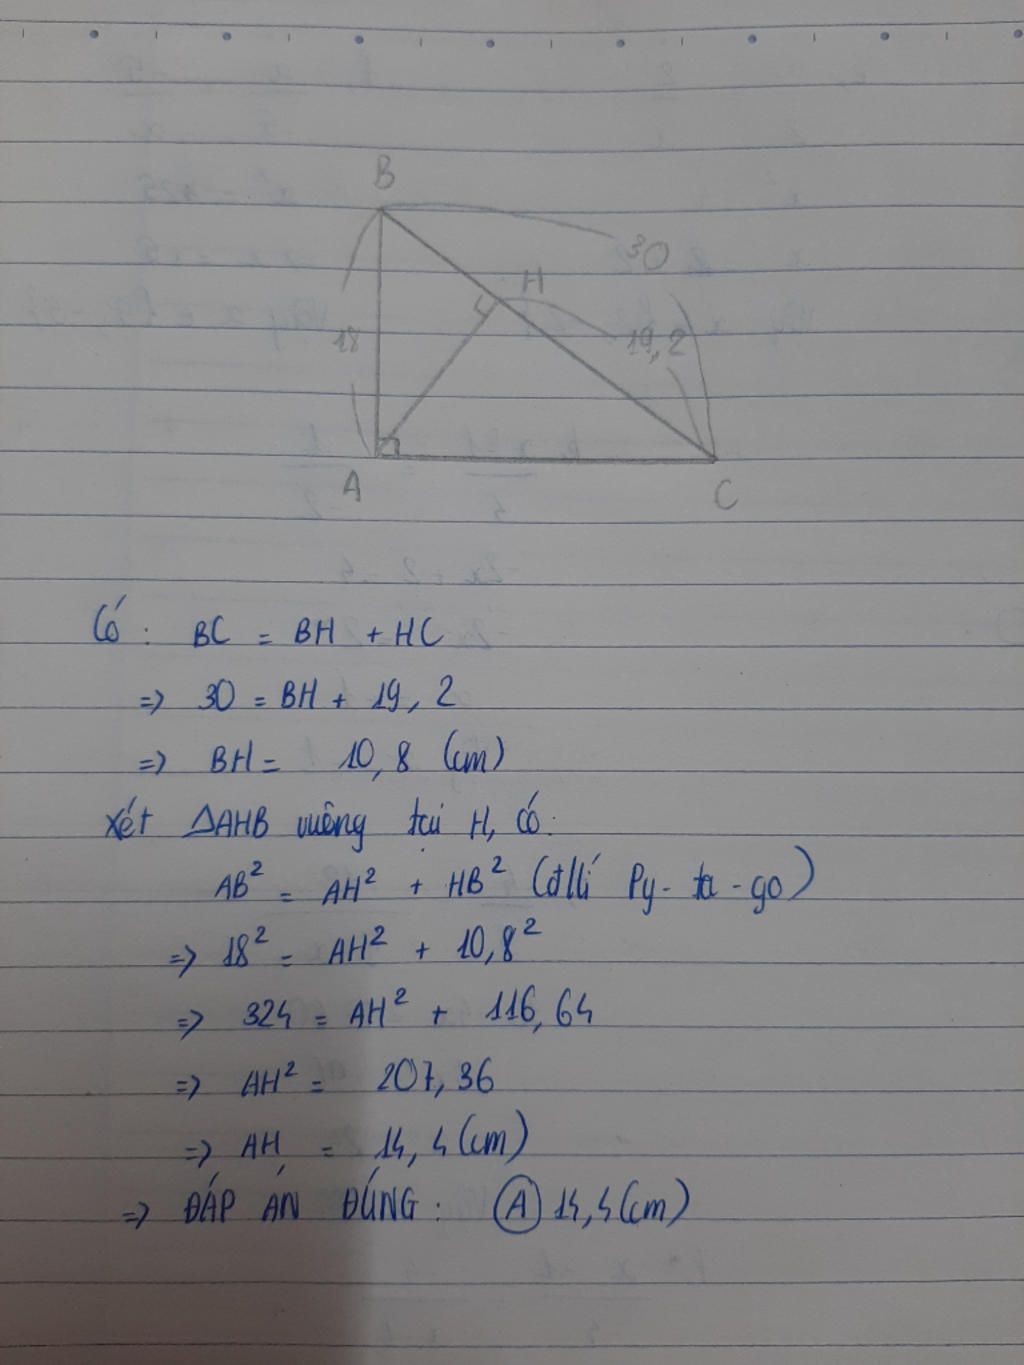 B
30
H
18
19,2
A
C
Có: BC = BH + HC
=> 30 = BH + 19,2
=> BH = 10,8 (cm)
Xét ΔAHB vuông tại H, có:
AB² = AH² + HB² (đ/lí Py-ta-go)
=> 18² = AH² + 10,8²
=> 324 = AH² + 116,64
=> AH² = 207,36
=> AH = 14,4 (cm)
=> ĐÁP ÁN ĐÚNG: A 14,4 (cm)